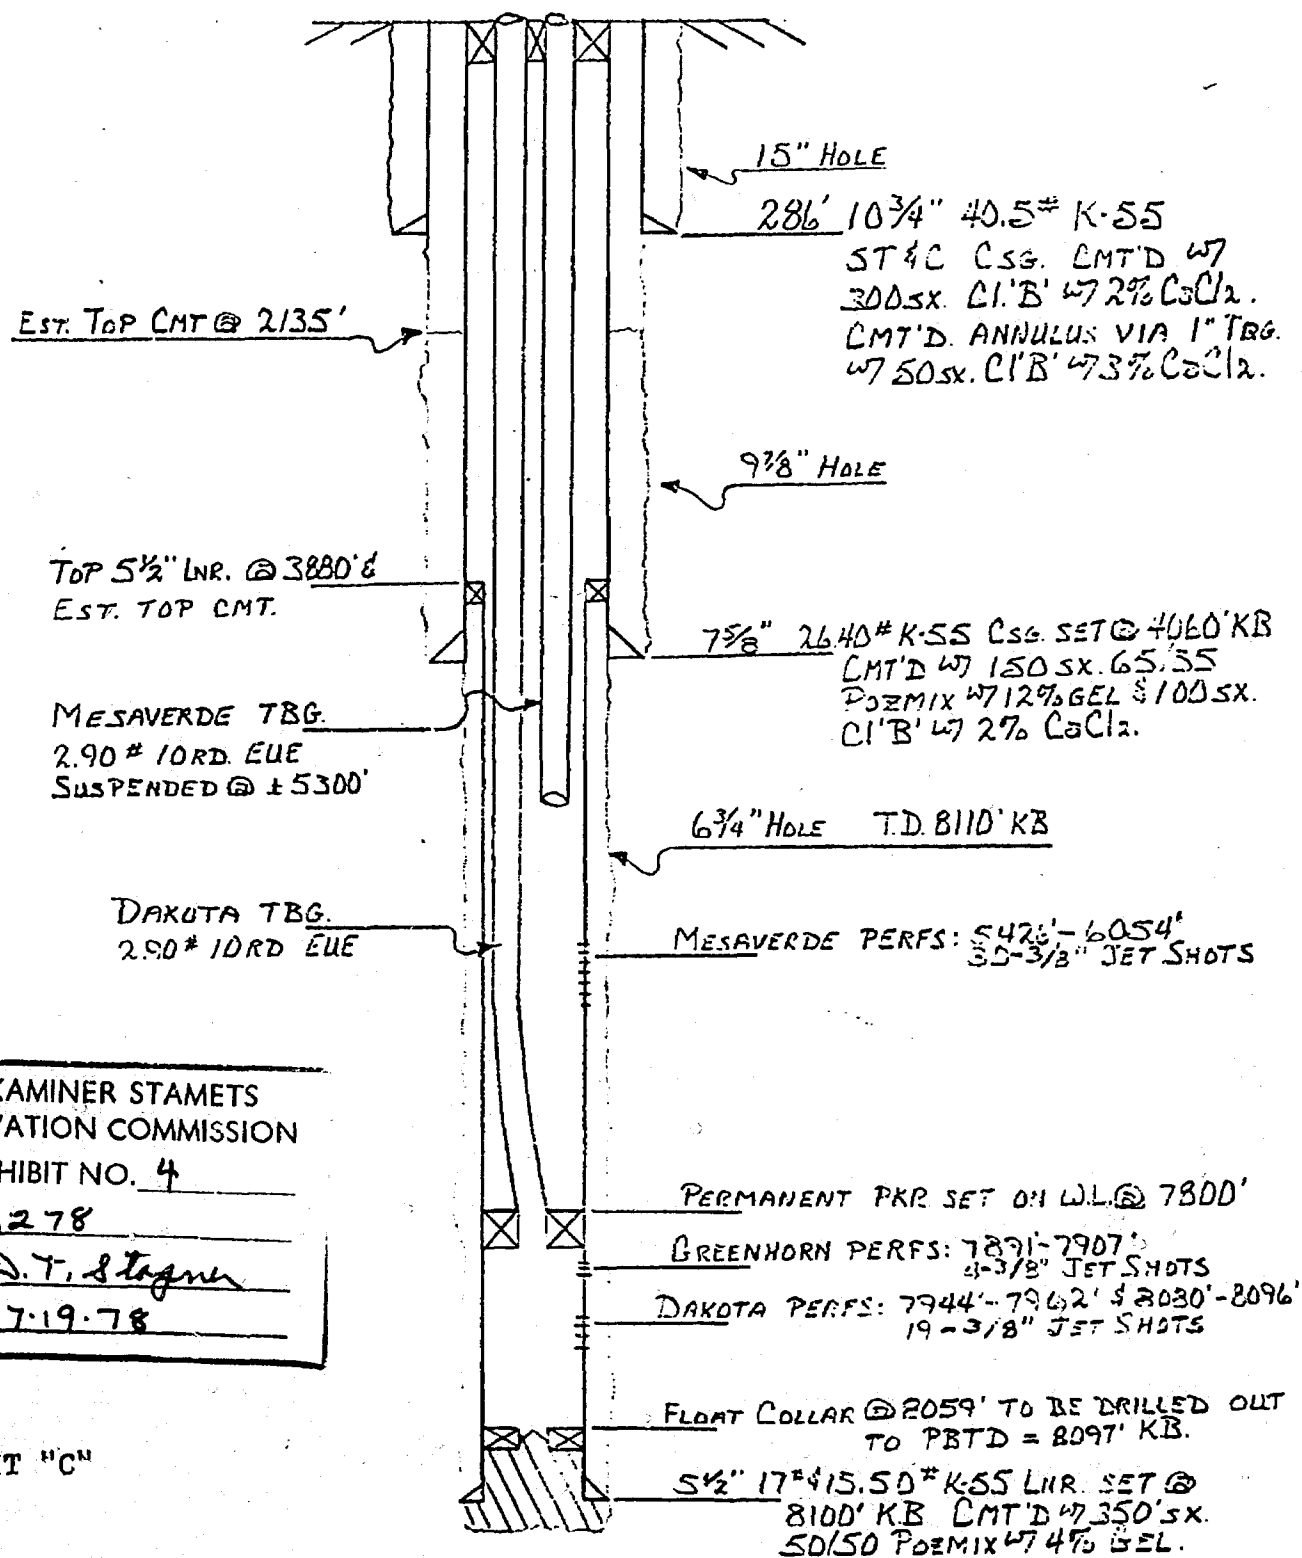 15" HOLE
286' 10 3/4" 40.5# K-55
ST&C CSG. CMT'D W/
300 SX. Cl.'B' W/ 2% CaCl2.
CMT'D. ANNULUS VIA 1" TBG.
W/ 50 SX. Cl 'B' W/ 3% CaCl2.
EST. TOP CMT @ 2135'
9 7/8" HOLE
TOP 5 1/2" LNR. @ 3880' &
EST. TOP CMT.
7 5/8" 26.40# K-55 CSG. SET @ 4060' KB
CMT'D W/ 150 SX. 65/35
POZMIX W/ 12% GEL & 100 SX.
Cl 'B' W/ 2% CaCl2.
MESAVERDE TBG.
2.90# 10RD. EUE
SUSPENDED @ ± 5300'
6 3/4" HOLE T.D. 8110' KB
DAKOTA TBG.
2.90# 10RD EUE
MESAVERDE PERFS: 5426'-6054'
3/8" JET SHOTS
XAMINER STAMETS
VATION COMMISSION
HIBIT NO. 4
278
D.T. Stagner
7-19-78
PERMANENT PKR SET ON W.L. @ 7800'
GREENHORN PERFS: 7891'-7907'
4-3/8" JET SHOTS
DAKOTA PERFS: 7944'-7962' & 8080'-8096'
19-3/8" JET SHOTS
FLOAT COLLAR @ 8059' TO BE DRILLED OUT
TO PBTD = 8097' KB.
IT "C"
5 1/2" 17# & 15.50# K-55 LNR. SET @
8100' KB CMT'D W/ 350 SX.
50/50 POZMIX W/ 4% GEL.